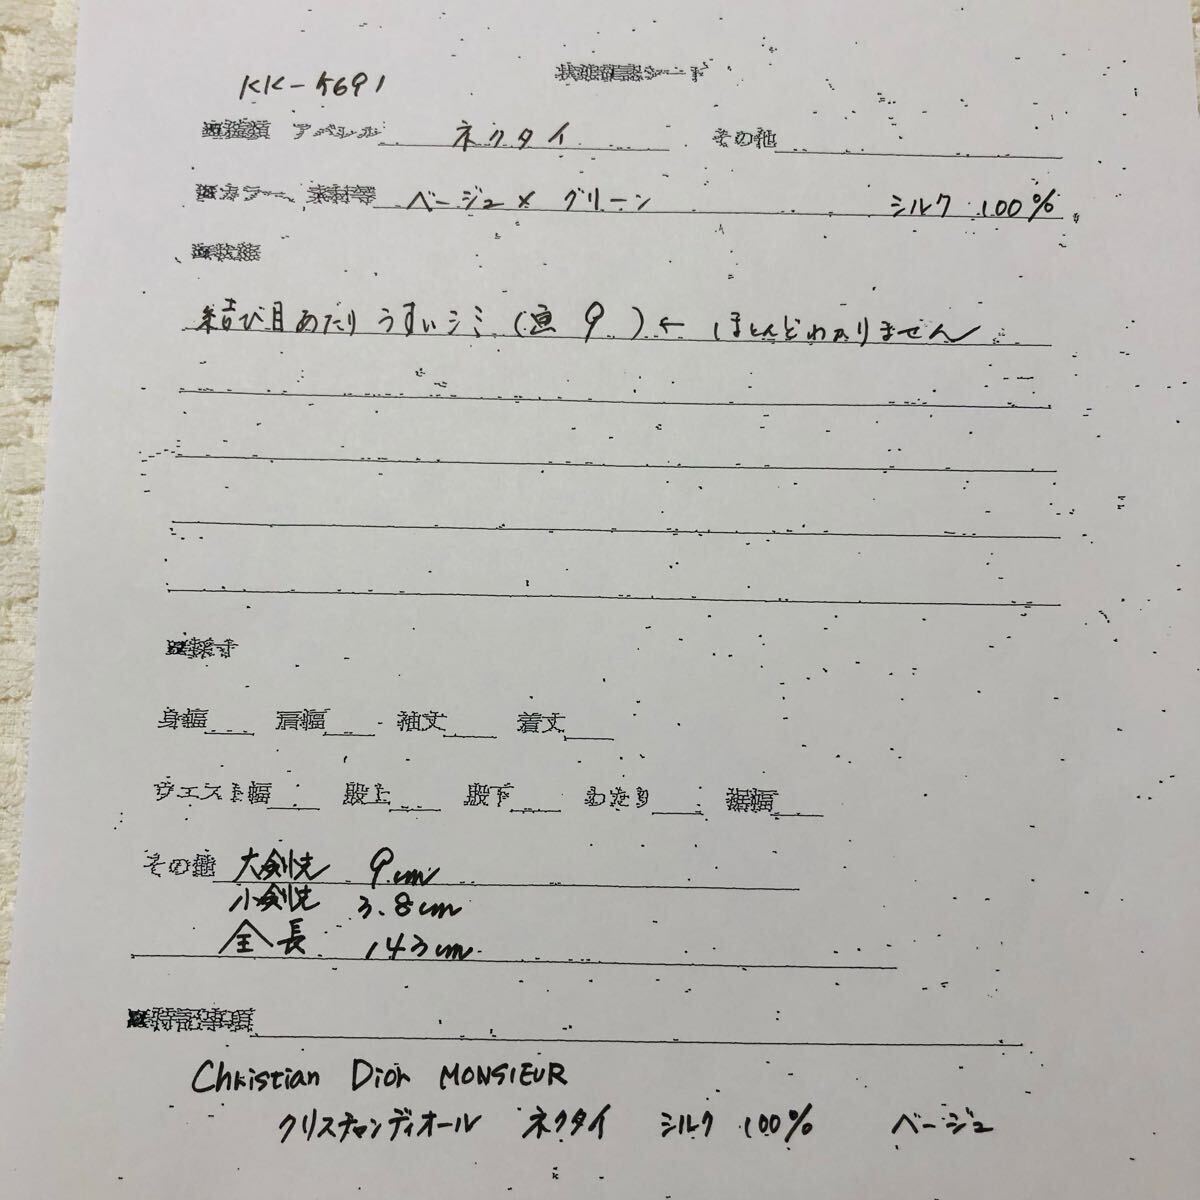 状態確認シート
KK-K691
※種類 アパレル ネクタイ その他
※カラー、素材等 ベージュ×グリーン シルク 100%
※状態
結び目あたり うすいシミ (画 9 ) ← ほとんどわかりません
※採寸
身幅 肩幅 袖丈 着丈
ウエスト幅 股上 股下 わたり 裾幅
その他 大剣先 9cm
小剣先 3.8cm
全長 143cm
※特記事項
Christian Dior MONSIEUR
クリスチャンディオール ネクタイ シルク 100% ベージュ